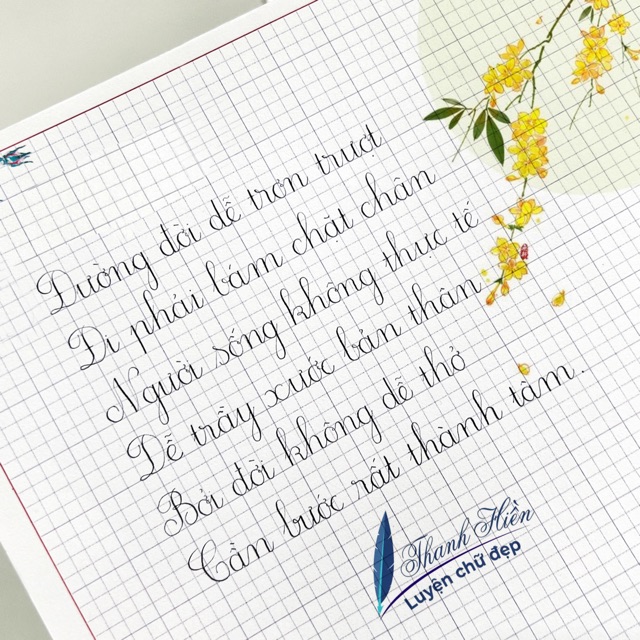 Đường đời dễ trơn trượt
Đi phải bám chặt chân
Người sống không thực tế
Dễ trầy xước bản thân
Bởi đời không dễ thở
Cần bước rất thành tâm.
Thanh Hiền
Luyện chữ đẹp